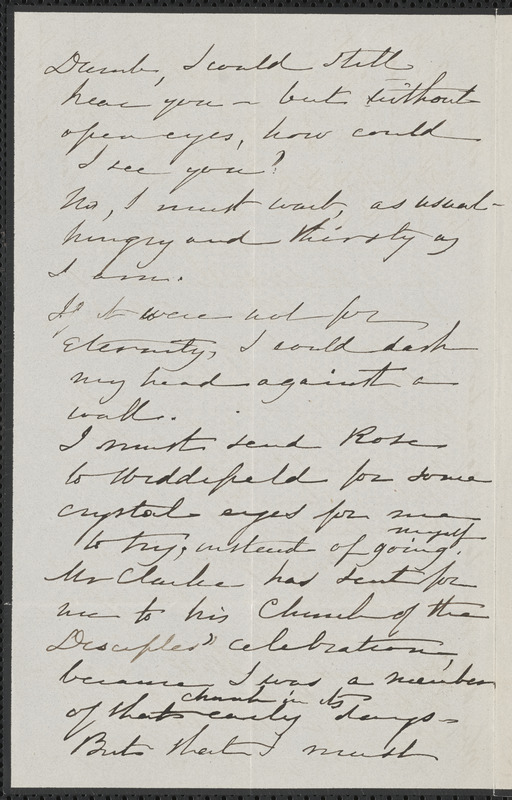 Dumb, I could still
hear you — but without
open eyes, how could
I see you?
No, I must wait, as usual —
hungry and thirsty as
I am.
If it were not for
Eternity, I could dash
my head against a
wall.
I must send Rose
to Widdifield for some
crystal eyes for me
to try, instead of going myself.
Mr Clarke has sent for
me to his Church of the
Disciples' celebration,
because I was a member
of that church in its early days —
But that I must